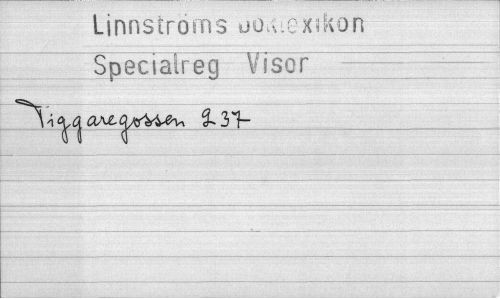 Linnströms Boklexikon
Specialreg Visor
Tiggaregossen 237